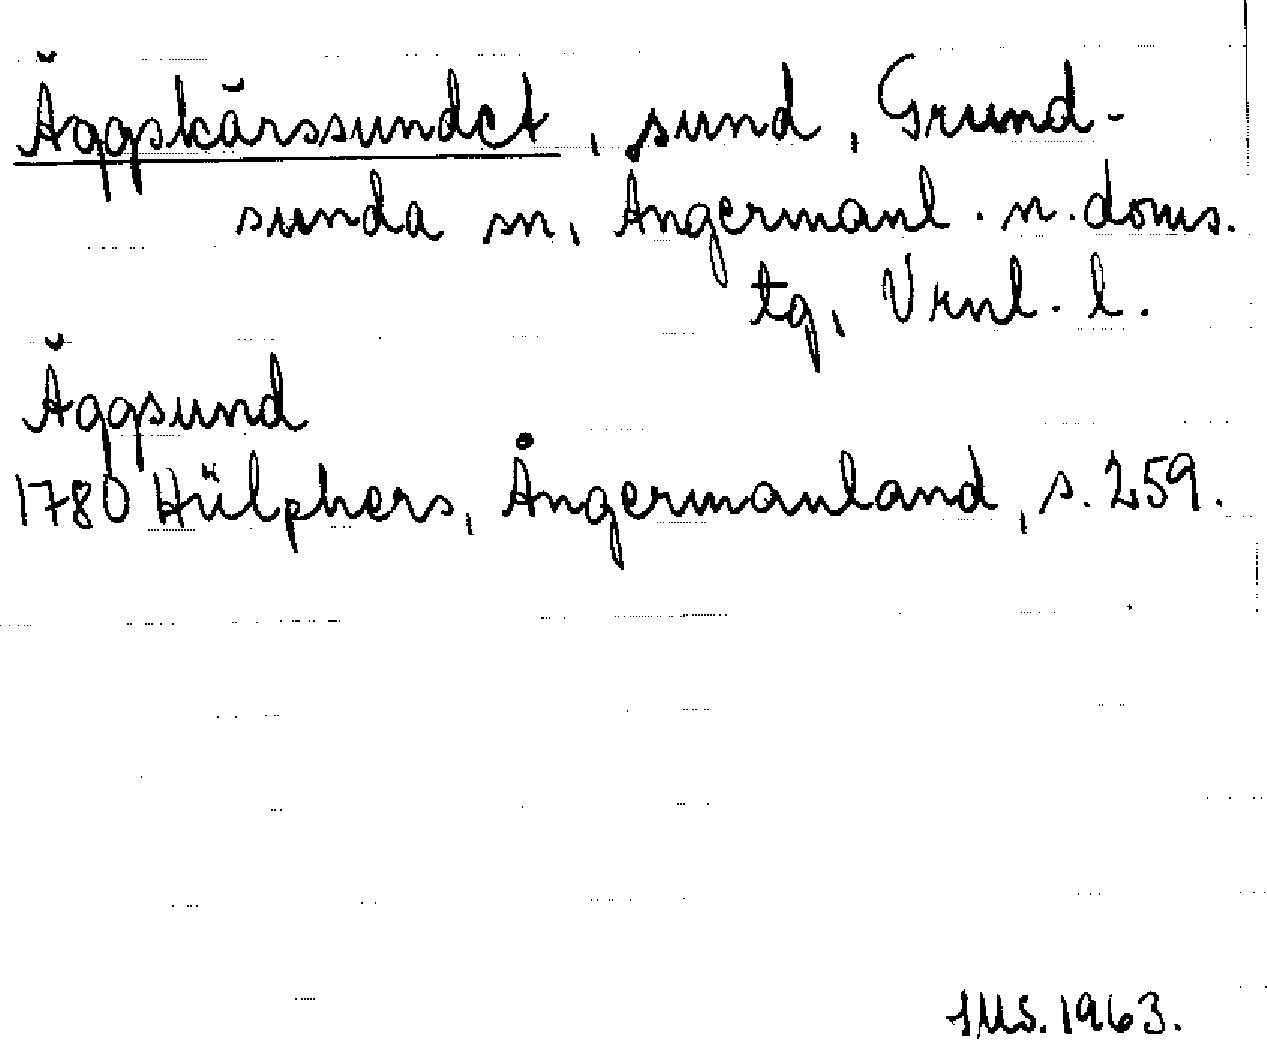 Äggskärssundet, sund, Grund-
sunda sn, Ångermanl. n. doms.
tg, Vrnl. l.
Äggsund
1780 Hülphers, Ångermanland, s. 259.
IMS. 1963.